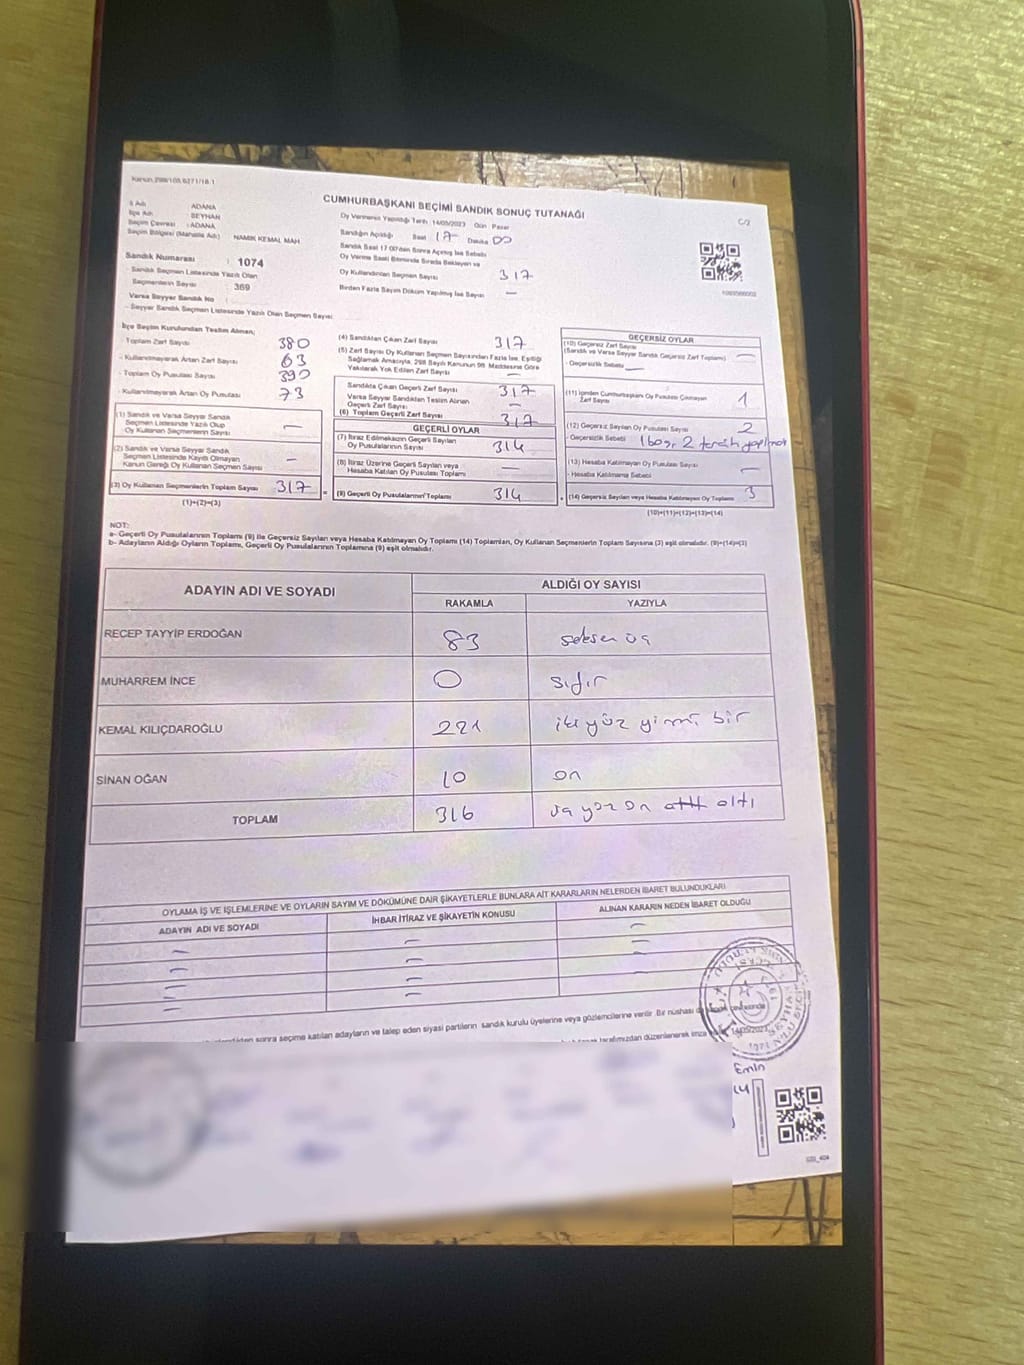 Kanun 298/105,6271/18.1
CUMHURBAŞKANI SEÇİMİ SANDIK SONUÇ TUTANAĞI
C/2
İl Adı ADANA
İlçe Adı SEYHAN
Seçim Çevresi : ADANA
Seçim Bölgesi (Mahalle Adı) NAMIK KEMAL MAH.
Sandık Numarası : 1074
- Sandık Seçmen Listesinde Yazılı Olan
Seçmenlerin Sayısı : 369
Varsa Seyyar Sandık No
- Seyyar Sandık Seçmen Listesinde Yazılı Olan Seçmen Sayısı:
Oy Vermenin Yapıldığı Tarih 14/05/2023 Gün Pazar
Sandığın Açıldığı Saat 17 Dakika 00
Sandık Saat 17.00'den Sonra Açılmış İse Sebebi
Oy Verme Saati Bitiminde Sırada Bekleyen ve
Oy Kullandırılan Seçmen Sayısı 317
Birden Fazla Sayım Döküm Yapılmış İse Sayısı —
İlçe Seçim Kurulundan Teslim Alınan;
Toplam Zarf Sayısı 380
- Kullanılmayarak Artan Zarf Sayısı 63
- Toplam Oy Pusulası Sayısı 390
- Kullanılmayarak Artan Oy Pusulası 73
(1) Sandık ve Varsa Seyyar Sandık
Seçmen Listesinde Yazılı Olup
Oy Kullanan Seçmenlerin Sayısı —
(2) Sandık ve Varsa Seyyar Sandık
Seçmen Listesinde Kayıtlı Olmayan
Kanun Gereği Oy Kullanan Seçmen Sayısı —
(3) Oy Kullanan Seçmenlerin Toplam Sayısı 317
(1)+(2)=(3)
(4) Sandıktan Çıkan Zarf Sayısı 317
(5) Zarf Sayısı Oy Kullanan Seçmen Sayısından Fazla İse, Eşitliği
Sağlamak Amacıyla, 298 Sayılı Kanunun 98. Maddesine Göre
Yakılarak Yok Edilen Zarf Sayısı —
Sandıkta Çıkan Geçerli Zarf Sayısı 317
Varsa Seyyar Sandıkları Teslim Alınan
Geçerli Zarf Sayısı —
(6) Toplam Geçerli Zarf Sayısı 317
GEÇERLİ OYLAR
(7) İtiraz Edilmeksizin Geçerli Sayılan
Oy Pusulasının Sayısı 314
(8) İtiraz Üzerine Geçerli Sayılan veya
Hesaba Katılan Oy Pusulası Toplamı —
(9) Geçerli Oy Pusulalarının Toplamı 314
GEÇERSİZ OYLAR
(10) Geçersiz Zarf Sayısı
(Sandık ve Varsa Seyyar Sandık Geçersiz Zarf Toplamı) —
- Geçersizlik Sebebi —
(11) İçinden Cumhurbaşkanı Oy Pusulası Çıkmayan
Zarf Sayısı 1
(12) Geçersiz Sayılan Oy Pusulası Sayısı 2
- Geçersizlik Sebebi 1 boş, 2 tercih yapılmış
(13) Hesaba Katılmayan Oy Pusulası Sayısı —
- Hesaba Katılmama Sebebi
(14) Geçersiz Sayılan veya Hesaba Katılmayan Oy Toplamı 3
(10)+(11)+(12)+(13)=(14)
NOT:
a- Geçerli Oy Pusulalarının Toplamı (9) ile Geçersiz Sayılan veya Hesaba Katılmayan Oy Toplamı (14) Toplamları, Oy Kullanan Seçmenlerin Toplam Sayısına (3) eşit olmalıdır. (9)+(14)=(3)
b- Adayların Aldığı Oyların Toplamı, Geçerli Oy Pusulalarının Toplamına (9) eşit olmalıdır.
ADAYIN ADI VE SOYADI
ALDIĞI OY SAYISI
RAKAMLA YAZIYLA
RECEP TAYYİP ERDOĞAN 83 seksen üç
MUHARREM İNCE 0 sıfır
KEMAL KILIÇDAROĞLU 221 iki yüz yirmi bir
SİNAN OĞAN 10 on
TOPLAM 316 üç yüz on altı altı
OYLAMA İŞ VE İŞLEMLERİNE VE OYLARIN SAYIM VE DÖKÜMÜNE DAİR ŞİKAYETLERLE BUNLARA AİT KARARLARIN NELERDEN İBARET BULUNDUKLARI
ADAYIN ADI VE SOYADI İHBAR İTİRAZ VE ŞİKAYETİN KONUSU ALINAN KARARIN NEDEN İBARET OLDUĞU
sonra seçime katılan adayların ve talep eden siyasi partilerin sandık kurulu üyelerine veya gözlemcilerine verilir. Bir nüshası
tarafımızdan düzenlenerek imza 14/05/2023
Emin